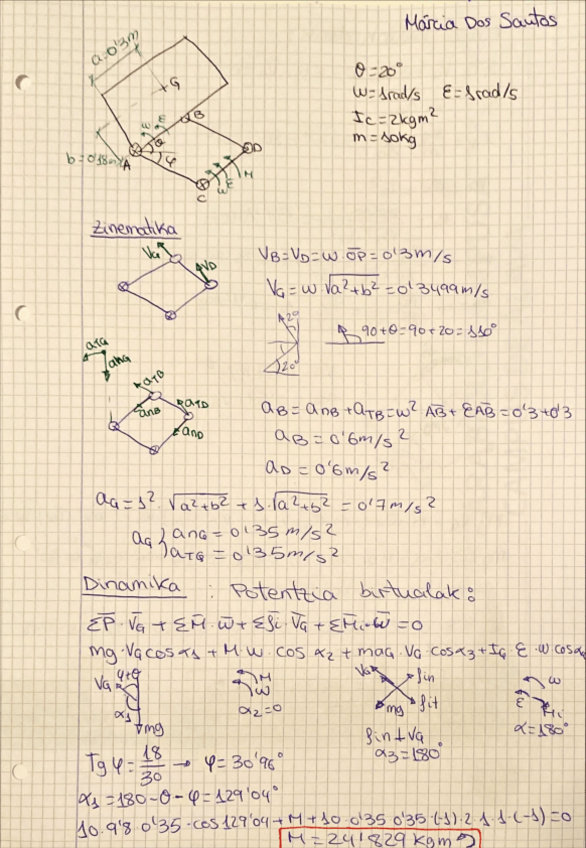 Márcia Dos Santos
a=0'3m
G
θ=20°
ω=1rad/s ε=1rad/s
I_c=2kgm²
m=10kg
ω ε
B
θ
φ
b=0'18m
A
D
M
ω ε
C
Zinematika
V_G
V_D
V_B=V_D=ω·OP=0'3m/s
V_G=ω·√a²+b²=0'3499m/s
20°
20°
90+θ=90+20=110°
a_TG
a_nG
a_TB
a_nB
a_TD
a_nD
a_B=a_nB+a_TB=ω² AB+εAB=0'3+0'3
a_B=0'6m/s²
a_D=0'6m/s²
a_G=1²·√a²+b² + 1·√a²+b² = 0'7m/s²
a_G } a_nG=0'35m/s²
a_TG=0'35m/s²
Dinamika : Potentzia birtualak:
ΣP·V_G + ΣM·ω + Σf_i·V_G + ΣM_i·ω=0
mg·V_G cosα₁ + M·ω·cos α₂ + ma_G·V_G·cosα₃ + I_G·ε·ω cosα
φ+θ
V_G
α₁
mg
M
ω
α₂=0
V_G
f_in
mg
f_it
f_in⊥V_G
α₃=180°
ω
ε
M_i
α=180°
Tgφ=18/30 → φ=30'96°
α₁=180-θ-φ=129'04°
10·9'8·0'35·cos129'04+M+10·0'35·0'35·(-1)·2·1·1·(-1)=0
M=24'1829 kgm